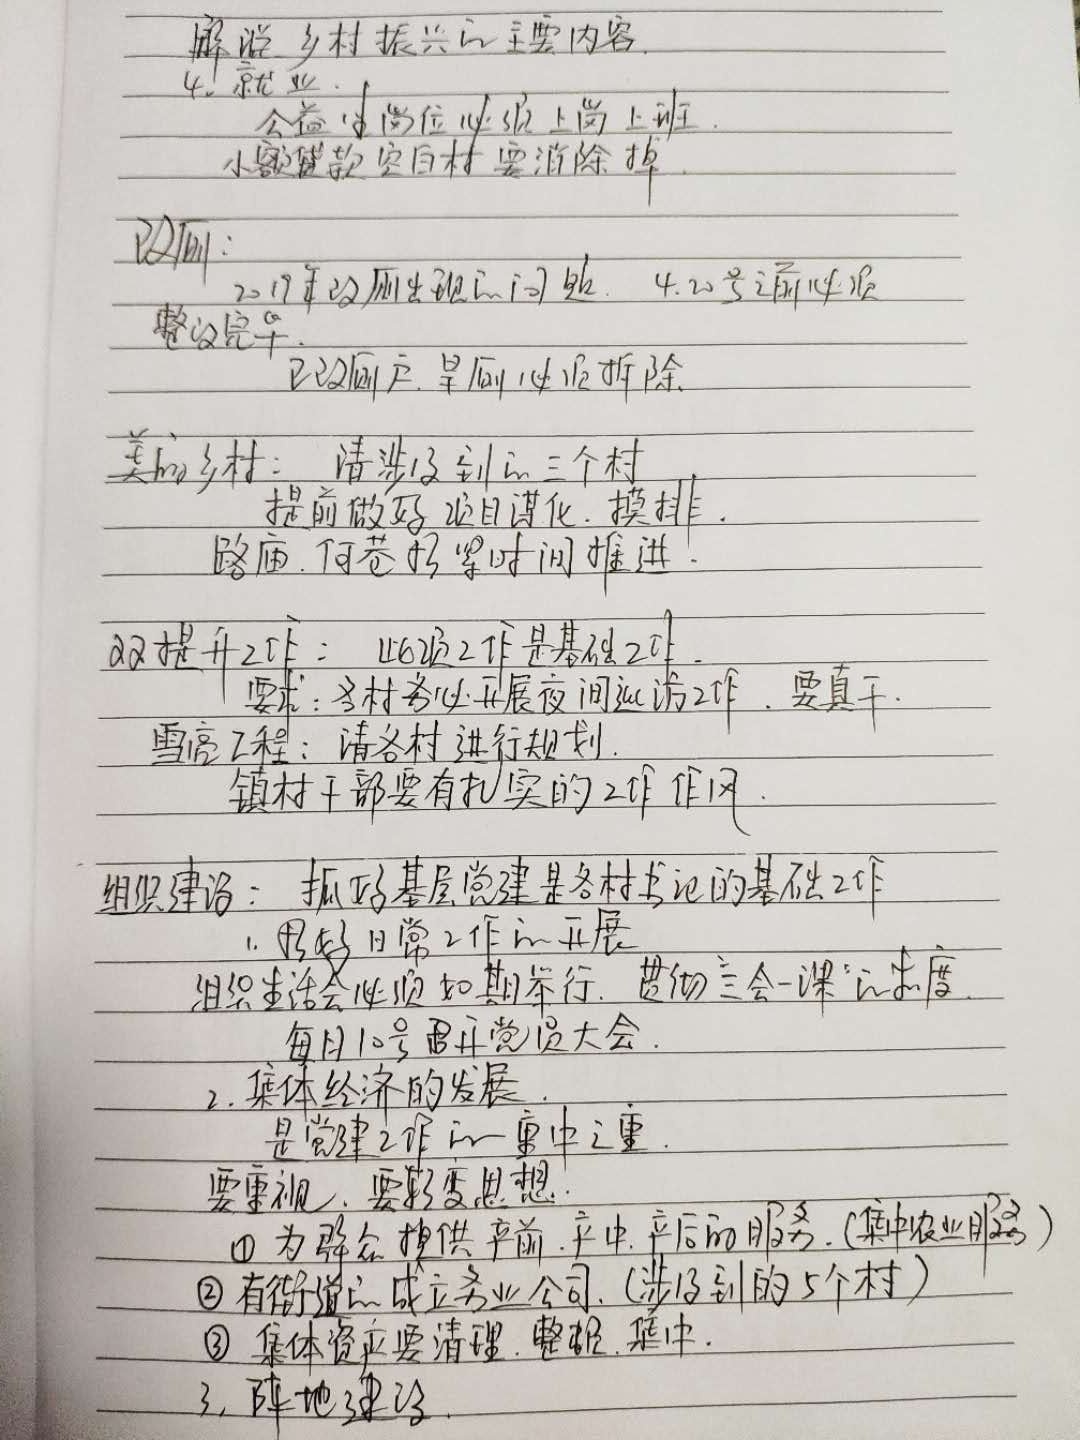 解说乡村振兴的主要内容.
4. 就业.
公益性岗位必须上岗上班.
小额贷款空白村要消除掉.
改厕:
2019年改厕出现的问题. 4.20号之前必须
整改完毕.
已改厕户. 旱厕必须拆除.
美丽乡村: 请涉及到的三个村
提前做好项目谋化. 摸排.
路庙. 何巷抓紧时间推进.
双提升工作: 此项工作是基础工作.
要求: 各村务必开展夜间巡访工作. 要真干.
雪亮工程: 请各村进行规划.
镇村干部要有扎实的工作作风.
组织建设: 抓好基层党建是各村书记的基础工作
1. 抓好日常工作的开展
组织生活会必须如期举行. 贯彻三会一课"的制度.
每月10号召开党员大会.
2. 集体经济的发展.
是党建工作的重中之重.
要重视. 要转变思想.
① 为群众提供产前. 产中. 产后的服务. (集中农业服务)
② 有街道的成立务业公司. (涉及到的5个村)
③ 集体资产要清理. 整视. 集中.
3. 阵地建设.